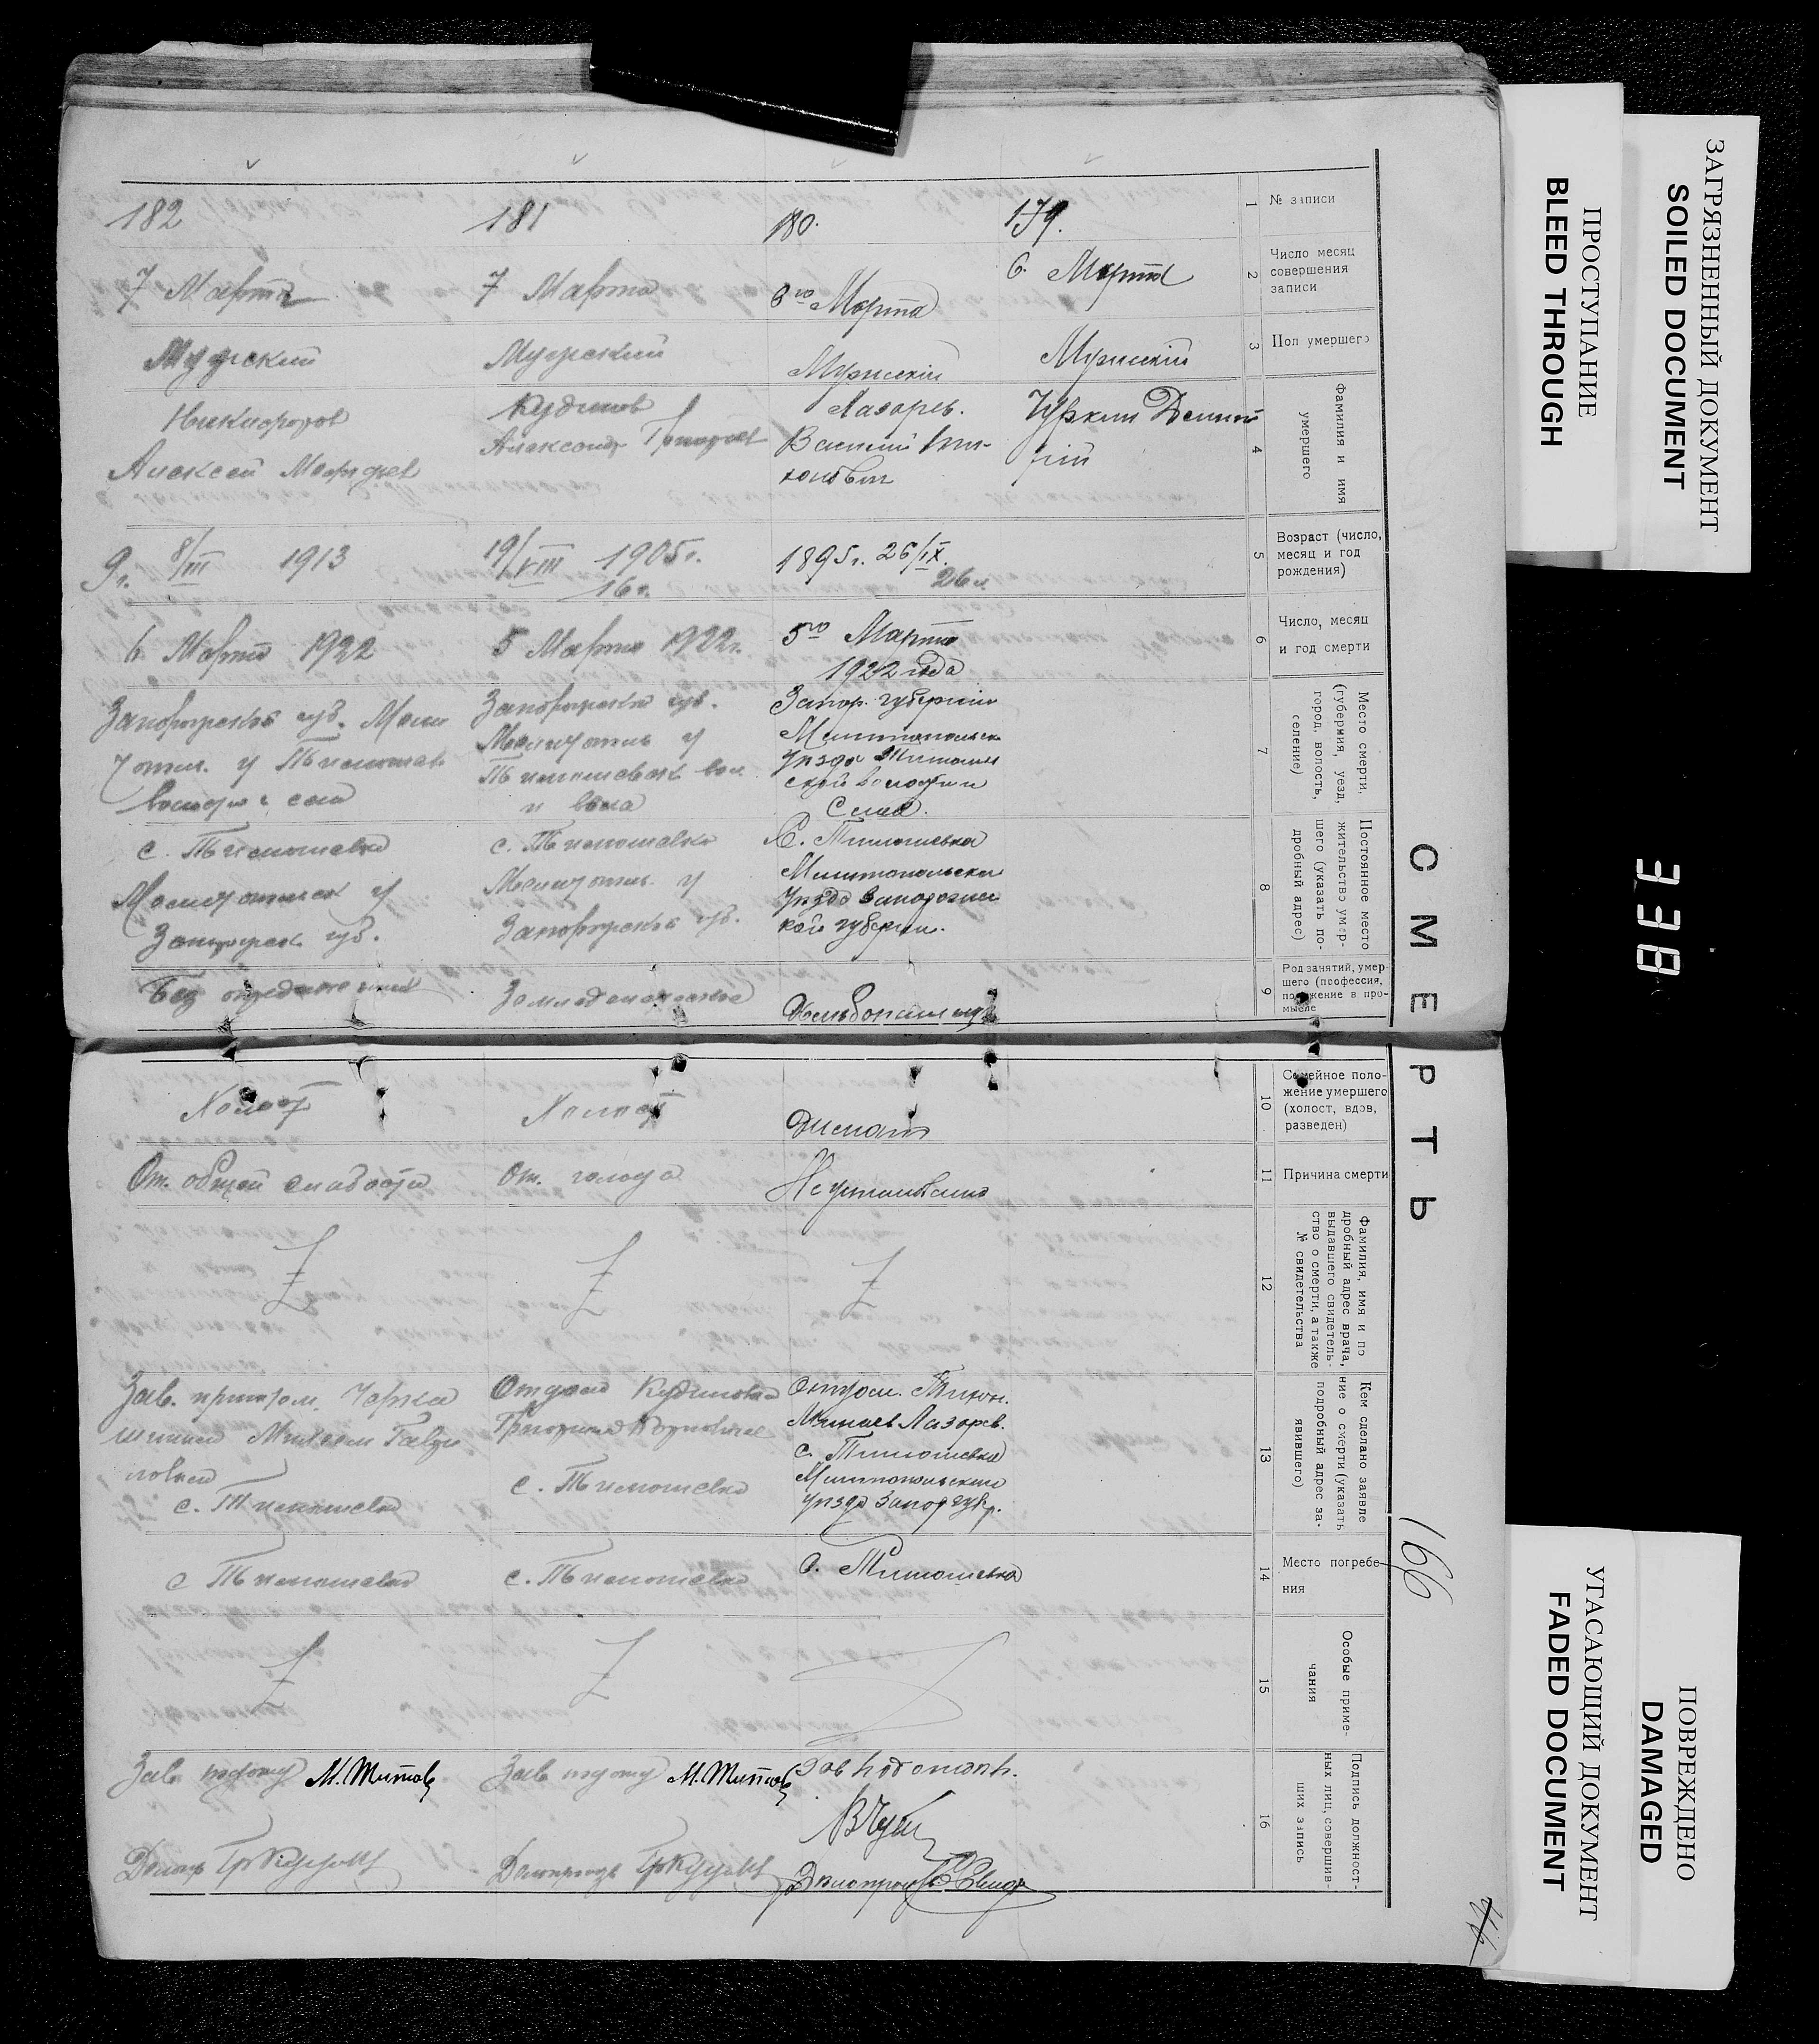 ЗАГРЯЗНЕННЫЙ ДОКУМЕНТ
SOILED DOCUMENT
ПРОСТУПАНИЕ
BLEED THROUGH
338
УГАСАЮЩИЙ ДОКУМЕНТ
FADED DOCUMENT
ПОВРЕЖДЕНО
DAMAGED
СМЕРТЬ
166
1 № записи
179.
180.
181
182
2 Число месяц
совершения
записи
6. Марта
6го Марта
7 Марта
7 Марта
3 Пол умершего
Мужский
Мужский
Мужский
Мужский
4 Фамилия и имя
умершего
Димит
рий
Лазарев.
Василий
Кудинов
Александр
Никифоров
Алексей
5 Возраст (число,
месяц и год
рождения)
1895г. 26/IX.
26 л.
19/VIII 1905г.
16 г.
9 г. 8/III 1913
6 Число, месяц
и год смерти
5го Марта
1922 года
5 Марта 1922г.
6 Марта 1922
7 Место смерти.
(губермия, уезд,
город, волость,
селение)
Запор. губернии
Мелитопольск
уезда Тимошев
ской волости
Села.
Запорожской губ.
Мелитопол у
Тимошевск вол.
и села
Запорожской губ. Мели
топол. у Тимошев
волости и села
8 Постоянное место
жительство умер-
шего (указать по-
дробный адрес)
С. Тимошевка
Мелитопольск
уезда Запорожс
кой губернии.
с. Тимошевка
Мелитопол. у
Запорожской губ.
с. Тимошевка
Мелитопольск у
Запорожск губ.
9 Род занятий, умер-
шего (профессия,
положение в про-
мысле
Хлебопашец
Земледельческое
Без определенных
10 Семейное поло-
жение умершего
(холост, вдов,
разведен)
Холост
Холост
11 Причина смерти
Не установлено
От голода
От общей слабости
12 Фамилия, имя и по
дробный адрес врача,
выдавшего свидетель-
ство о смерти, а также
№ свидетельства
13 Кем сделано заявле
ние о смерти (указать
подробный адрес за-
явившего)
Отцом. Тихон.
Лазарев.
с. Тимошевка
Мелитопольский
уезда Запор губ.
Отцом Кудиновым
Григорием
с. Тимошевка
Зав. приютом.
с. Тимошевка
14 Место погребе-
ния
С. Тимошевка
с. Тимошевка
с Тимошевка
15 Особые приме-
чания
16 Подпись должност-
ных лиц, совершив-
ших запись
Зав подотд М.Титов
Зав. подотд М.Титов
Делопроизв
Делопроизв